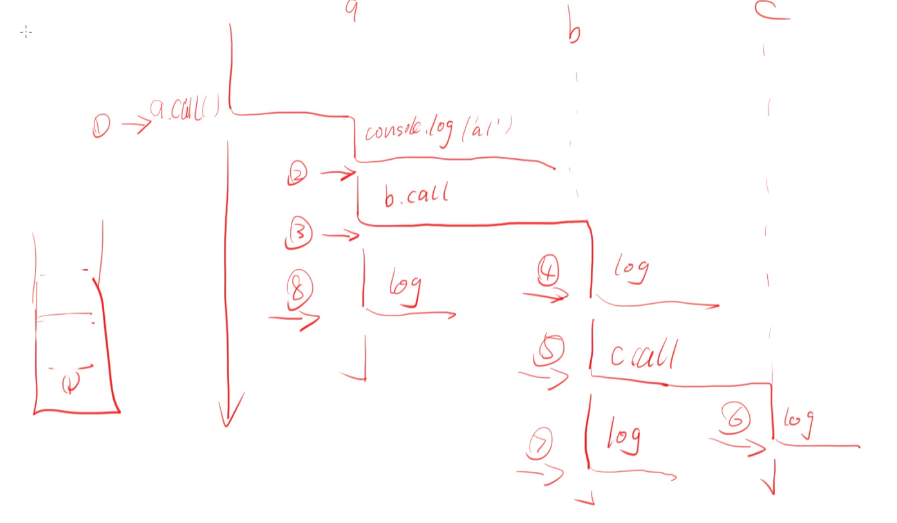 a
b
c
① → a.call()
console.log('a1')
② →
b.call
③ →
④
log
⑧
log
⑤
c.call
⑥
log
⑦
log
①